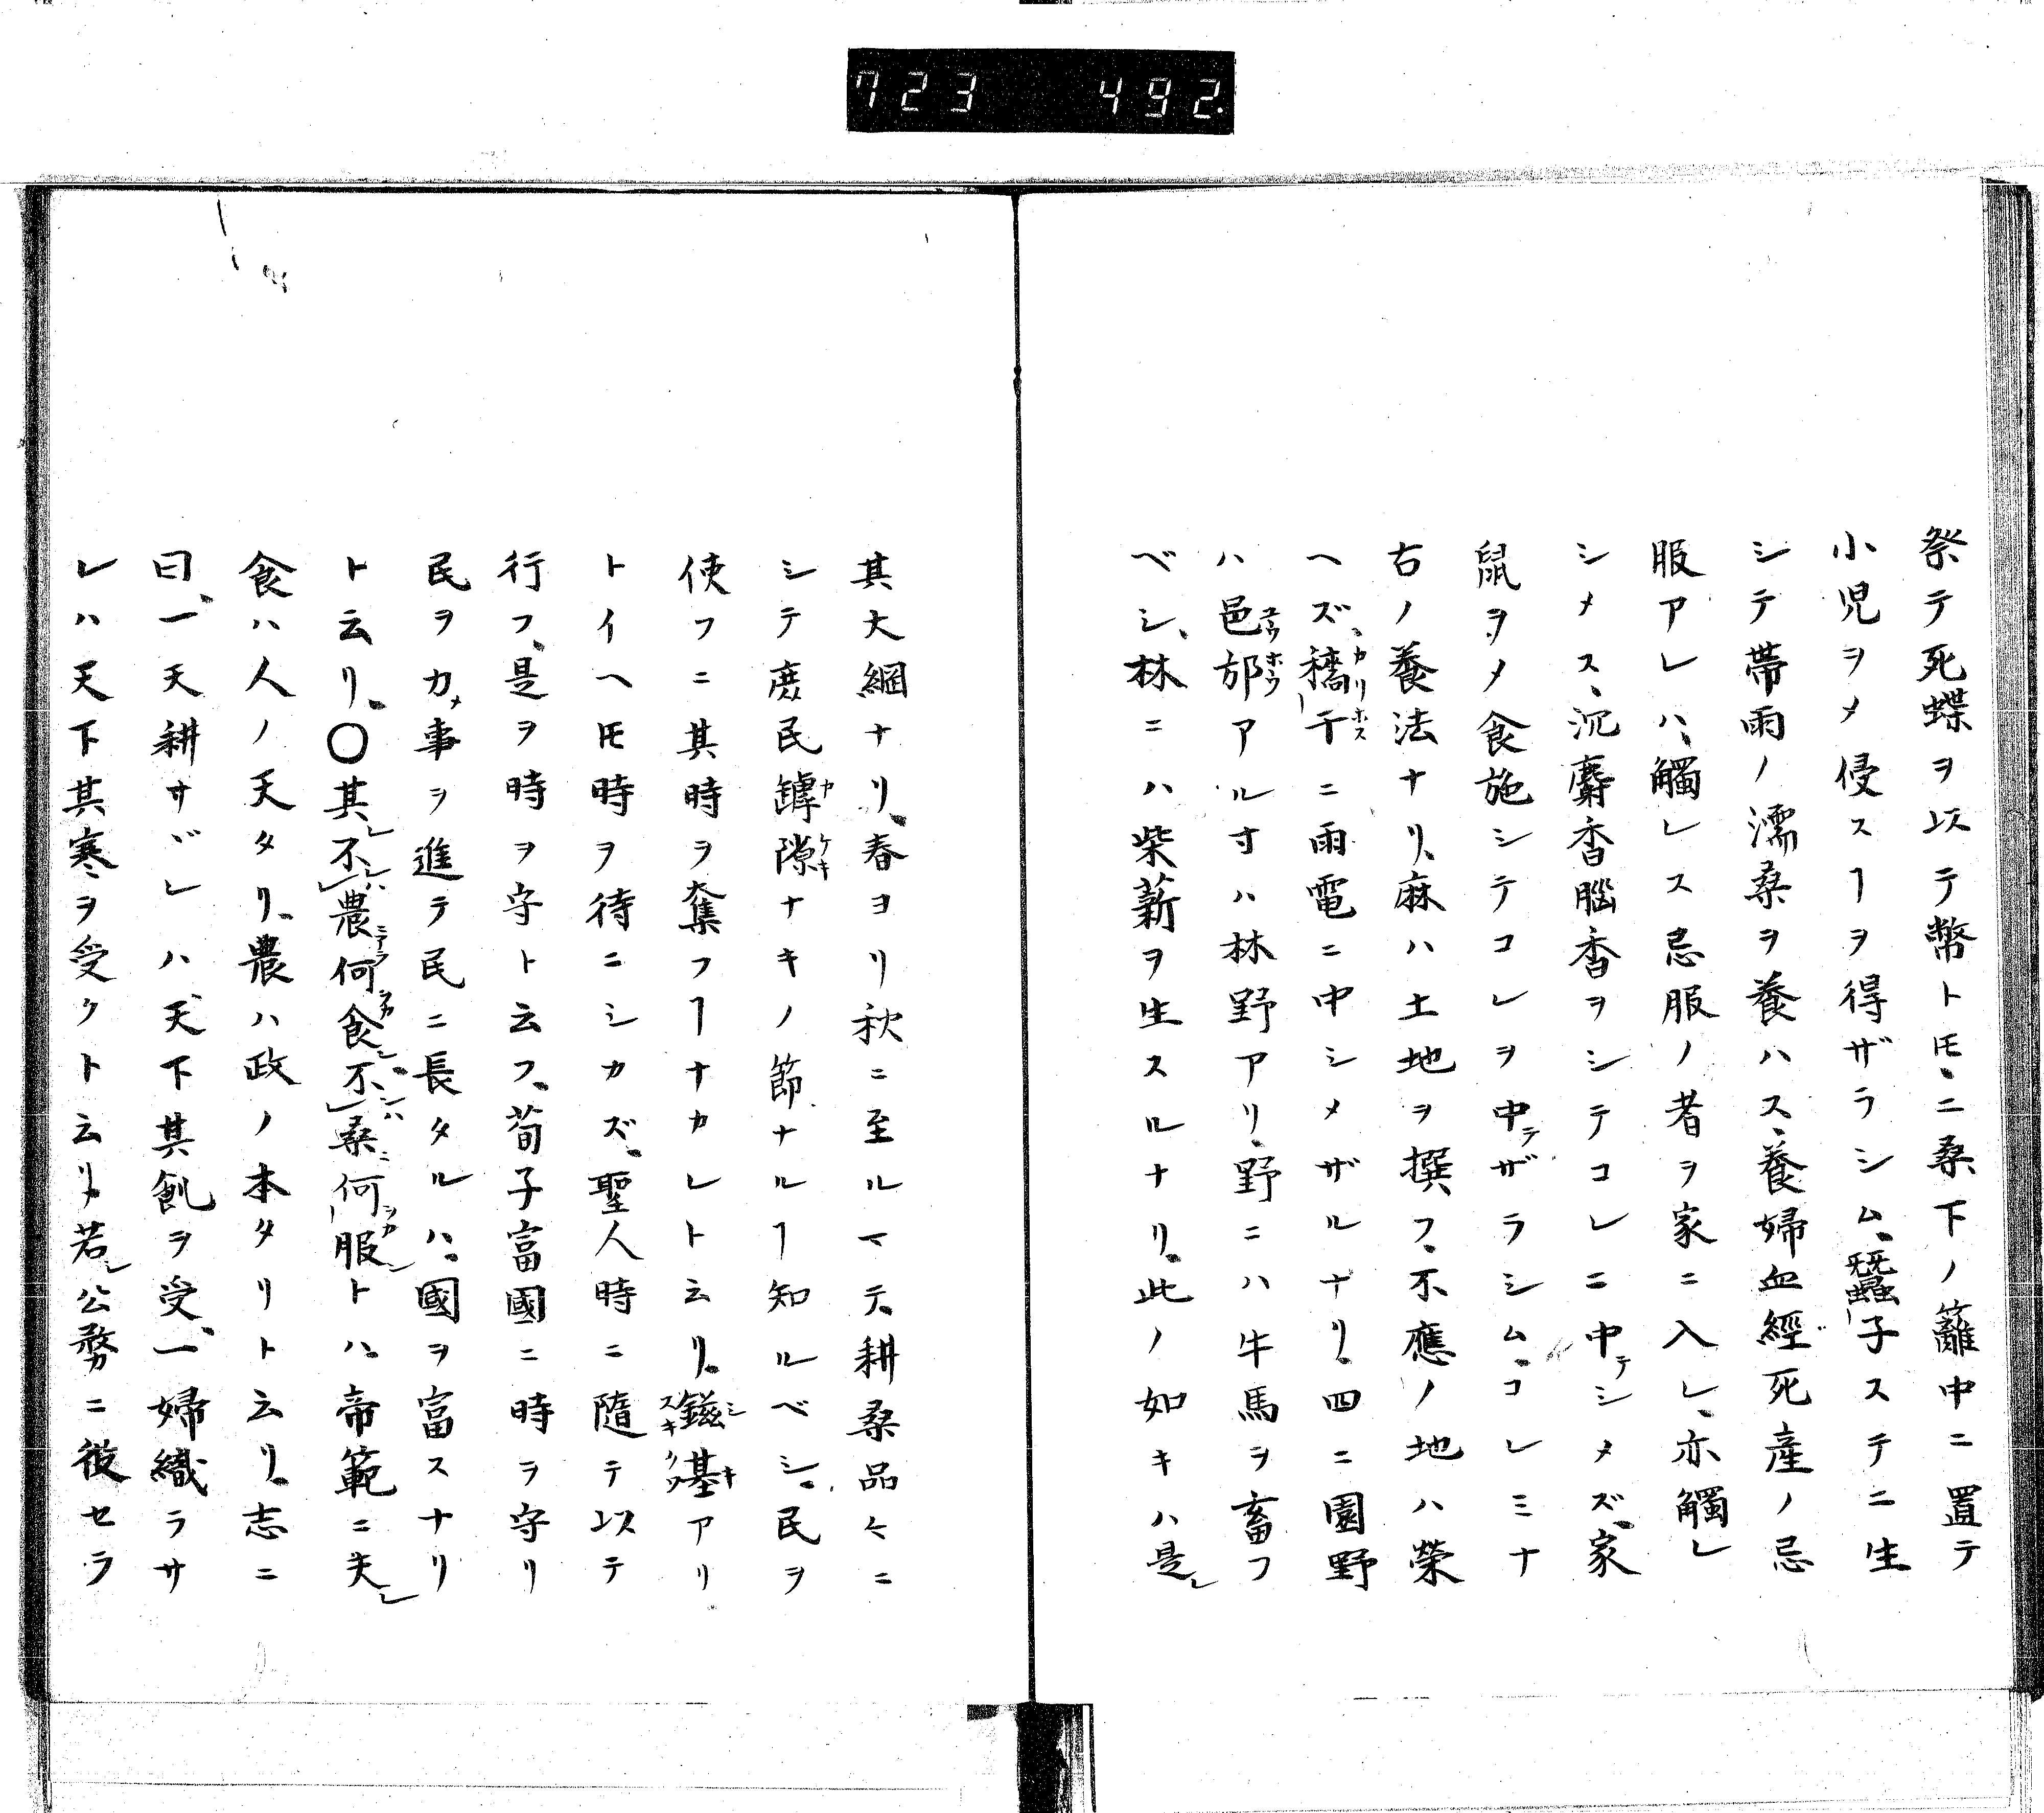 723 492.
祭テ死蝶ヲ以テ幣トモニ桑下ノ籬中ニ置テ
小児ヲメ侵スヿヲ得ザラシム、蠶子ステニ生
シテ帯雨ノ濡桑ヲ養ハス、養婦血經死産ノ忌
服アレハ、觸レス忌服ノ者ヲ家ニ入レ、亦觸レ
シメス、沉麝香腦香ヲシテコレニ中テシメズ、家
鼠ヲメ食施シテコレヲ中テザラシム、コレミナ
右ノ養法ナリ、麻ハ土地ヲ撰フ、不應ノ地ハ榮
ヘズ、穚干ニ雨電ニ中シメザルナリ、四ニ園野
ハ邑邡アル寸ハ林野アリ、野ニハ牛馬ヲ畜フ
ベシ、林ニハ柴薪ヲ生スルナリ、此ノ如キハ是レ
其大綱ナリ、春ヨリ秋ニ至ルマテ耕桑品々ニ
シテ庻民罅隙ナキノ節ナルヿ知ルベシ、民ヲ
使フニ其時ヲ奪フヿナカレト云リ、鎡基アリ
トイヘ𪜈時ヲ待ニシカズ、聖人時ニ隨テ以テ
行フ、是ヲ時ヲ守ト云フ、荀子富國ニ時ヲ守リ
民ヲカメ事ヲ進テ民ニ長タルハ、國ヲ富スナリ
ト云リ、〇其レ不農何食不桑何服トハ、帝範ニ夫レ
食ハ人ノ天タリ、農ハ政ノ本タリト云リ、志ニ
曰、一夫耕サヾレハ、天下其飢ヲ受、一婦織ラサ
レハ天下其寒ヲ受クト云リ、若シ公務ニ役セラ